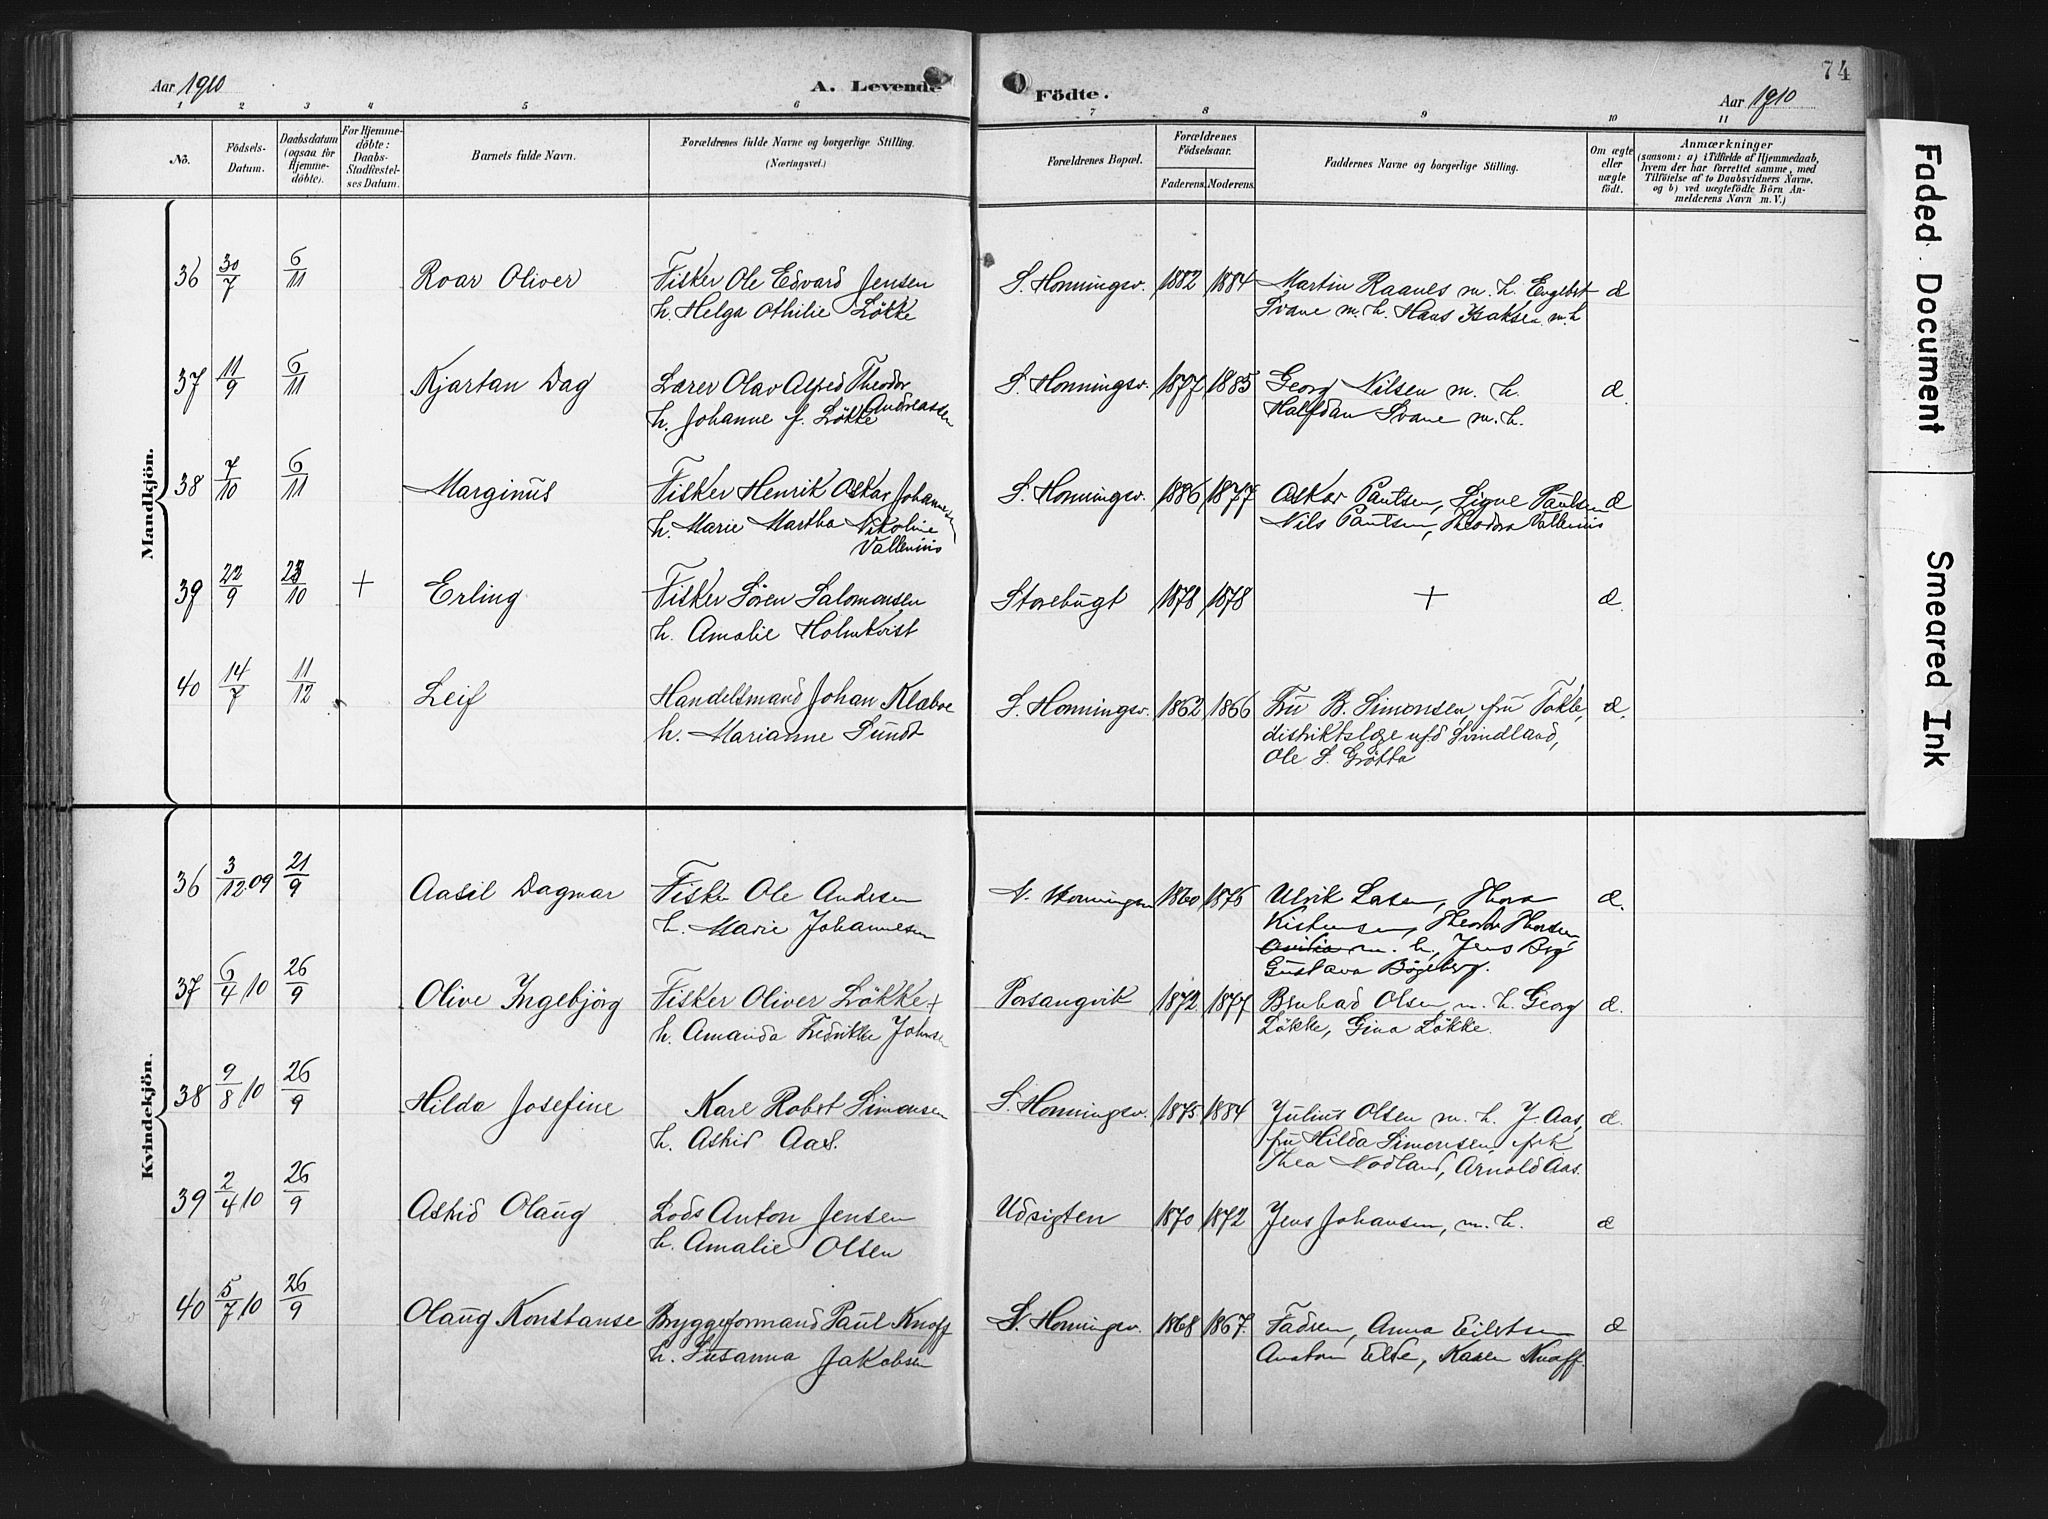 Aar 1910
A. Levende
Födte.
Aar 1910
74
1 2 3 4 5 6 7 8 9 10 11
No.
Födsels-Datum.
Daabsdatum (ogsaa for Hjemme-döbte).
For Hjemme-döbte: Daabs-Stadfæstel-ses Datum.
Barnets fulde Navn.
Forældrenes fulde Navne og borgerlige Stilling.
(Næringsvei.)
Forældrenes Bopæl.
Forældrenes Födselsaar.
Faderens. Moderens.
Faddernes Navne og borgerlige Stilling.
Om ægte eller uægte födt.
Anmærkninger
(saasom: a) i Tilfælde af Hjemmedaab,
hvem der har forrettet samme, med
Tilföielse af to Daabsvidners Navne.
og b) ved uægtefödte Börn An-
melderens Navn m. V.)
Mandkjön.
36 30/7 6/11 Roar Oliver Fisker Ole Edvard Jensen S. Honningsv. 1882 1884 Martin Raanes m. h. Engebrt æ
h. Helga Othilie Lökke Svane m. h. Hans Isaksen m. h
37 11/9 6/11 Kjartan Dag Lærer Olav Alfred Theodor Andreassen S. Honningsv. 1877 1885 Georg Nilsen m. h. æ.
h. Johanne f. Lökke Halfdan Svane m. h.
38 7/10 6/11 Marginus Fisker Henrik Oskar Johannesen S. Honningsv. 1886 1877 Oskar Paulsen, Signe Paulsen æ
h. Marie Martha Nikoline Vallenius Nils Paulsen, Theodora Vallenius
39 22/9 23/10 + Erling Fisker Sören Salomonsen Storebugt 1878 1878 + æ.
h. Amalie Holmkvist
40 14/7 11/12 Leif Handelsmand Johan Klæboe S. Honningsv. 1862 1866 Fru B. Simonsen, fru Tokle, æ.
h. Marianne Sundt distriktslæge Svindland,
Ole S. Grötta
Kvindekjön.
36 3/12 09 21/9 Aasil Dagmar Fisker Ole Andersen N. Honningsv 1860 1876 Ulrik Lasen, Thora æ.
h. Marie Johannesen Kistensen, Theodor Thorsen
m. h., Jens Berg
Gustava Bögeberg.
37 6/4 10 26/9 Olive Ingebjörg Fisker Oliver Lökke + Porsangvik 1872 1877 Bernhad Olsen m. h. Georg æ.
h. Amanda Fredrikke Johnsen Lökke, Gina Lökke.
38 9/8 10 26/9 Hilda Josefine Karl Robert Simonsen S. Honningsv. 1875 1884 Julius Olsen m. h. J. Aas, æ.
h. Astrid Aas. fru Hilda Simonsen, frk
Thea Nodland, Arnold Aas.
39 2/4 10 26/9 Astrid Olaug Lods Anton Jensen Udsigten 1870 1872 Jens Johansen, m. h. æ
h. Amalie Olsen
40 5/7 10 26/9 Olaug Konstanse Bryggeformand Paul Knoff S. Honningsv. 1868 1867 Fadren, Anna Eilertsen æ
h. Susanna Jakobsen Anaton Else, Karen Knoff.
Faded Document
Smeared Ink